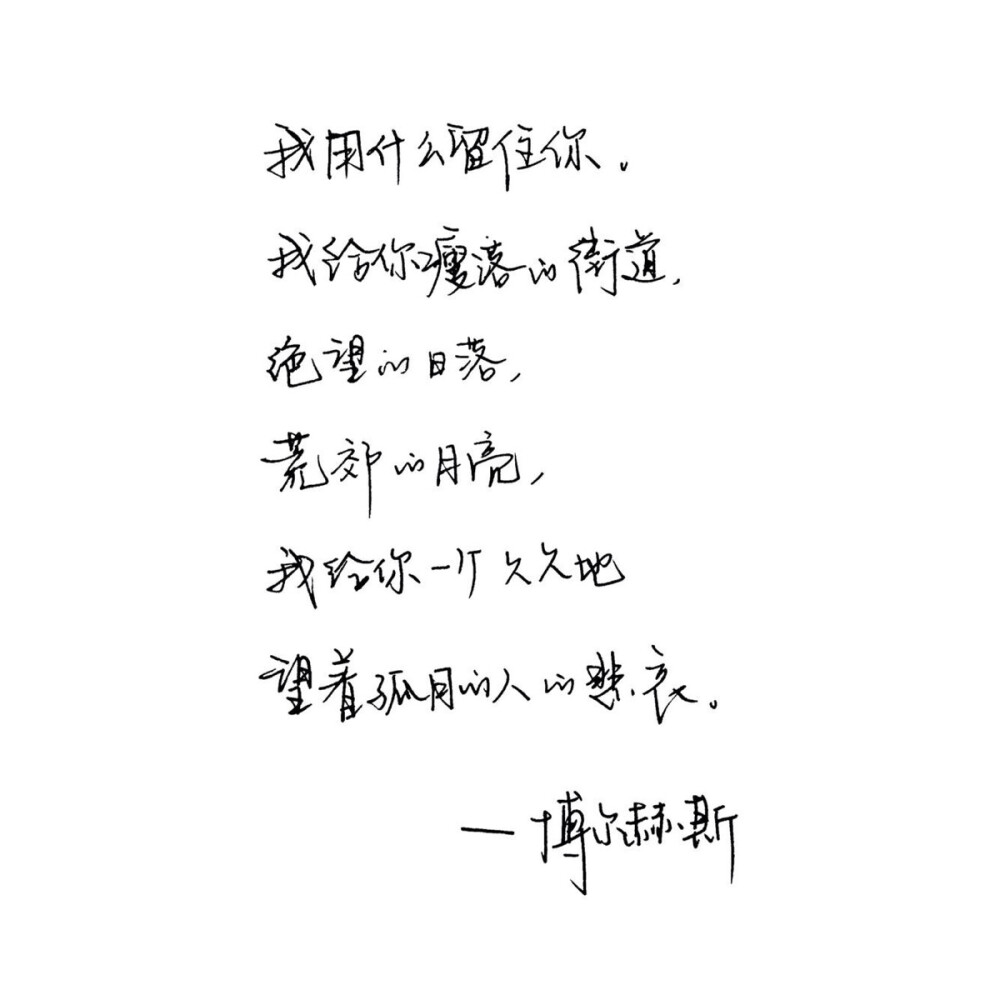 我用什么留住你。
我给你瘦落的街道,
绝望的日落,
荒郊的月亮,
我给你一个久久地
望着孤月的人的悲哀。
—博尔赫斯